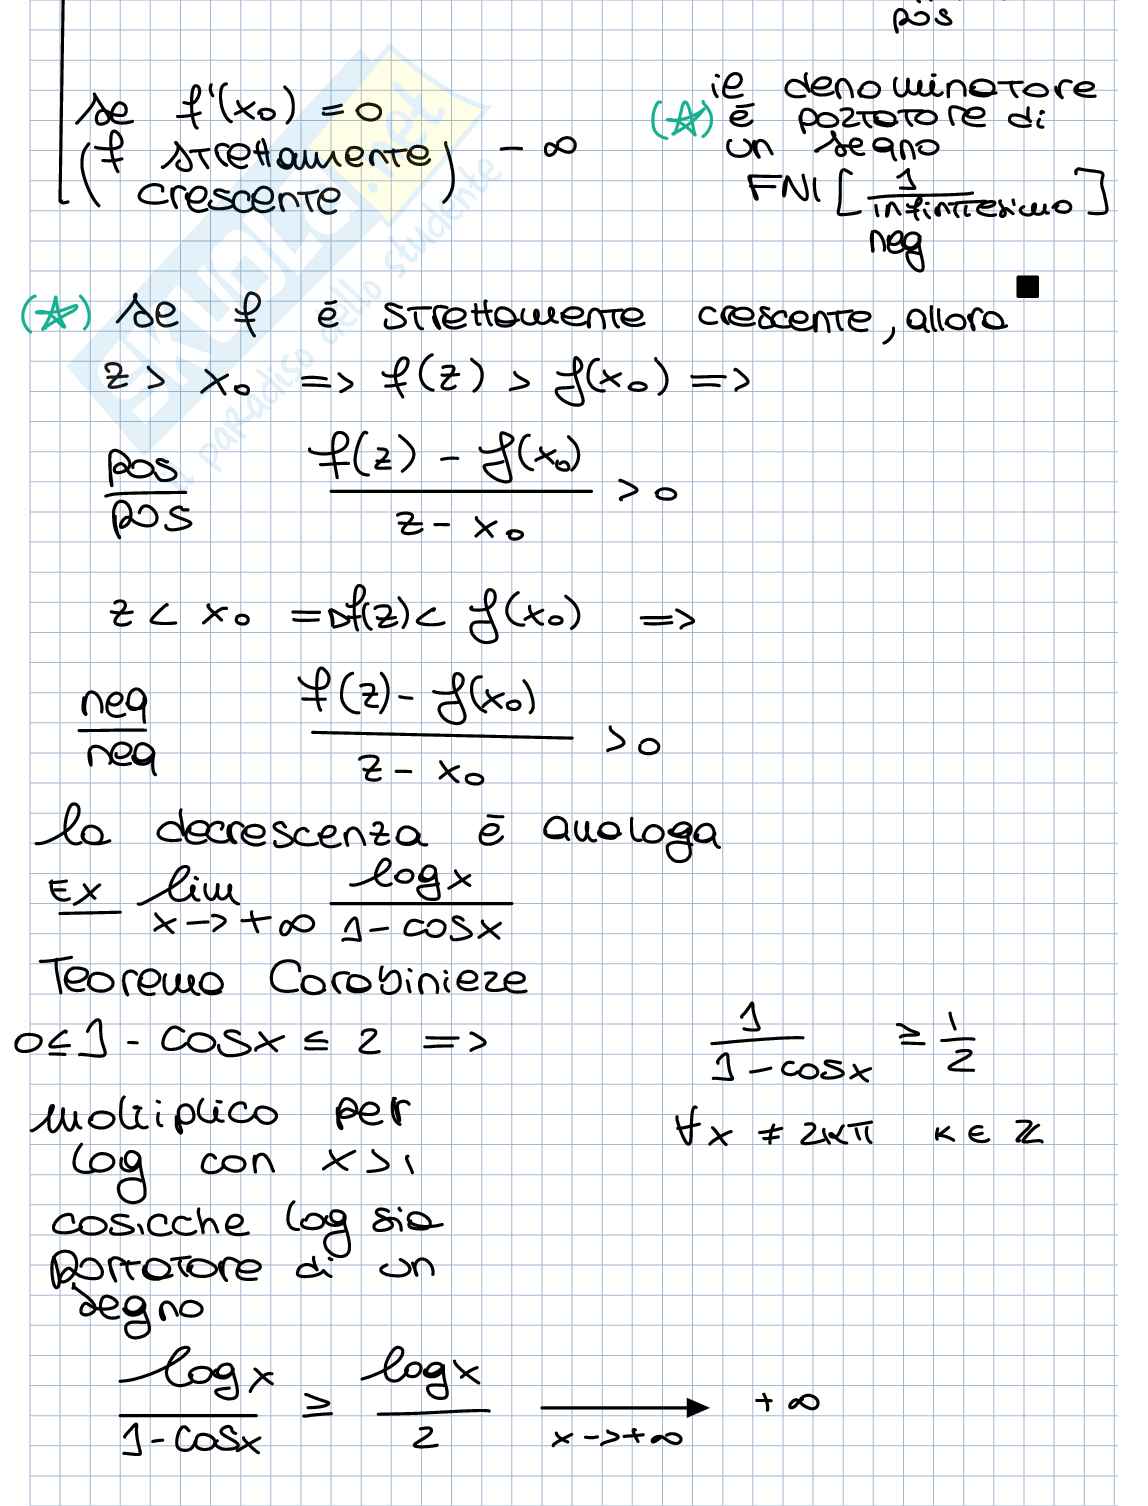 pos
se f'(x₀) = 0
(f strettamente crescente) - ∞
(☆) ie denominatore
è portatore di
un segno
FNI [1/infinitesimo]
neg
(☆) se f è strettamente crescente, allora
z > x₀ => f(z) > f(x₀) =>
pos/pos (f(z) - f(x₀))/(z - x₀) > 0
z < x₀ => f(z) < f(x₀) =>
neg/neg (f(z) - f(x₀))/(z - x₀) > 0
la decrescenza è analoga
EX lim x->+∞ log x/(1 - cos x)
Teorema Carabiniere
0 ≤ 1 - cos x ≤ 2 => 1/(1 - cos x) ≥ 1/2
∀x ≠ 2kπ k ∈ ℤ
moltiplico per
log con x > 1
cosicche log sia
portatore di un
segno
log x/(1 - cos x) ≥ log x/2 → x->+∞ +∞
SKUOLA.net
il paradiso dello studente